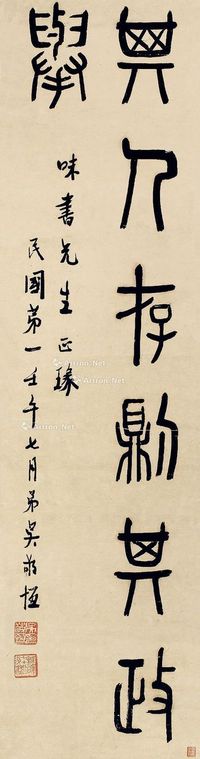 其人存則其政
舉
味書先生正瑑
民國第一壬午七月弟吳敬恆
Artron.Net
Artron.Net
Artron.Net